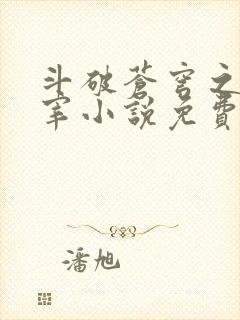 斗破蒼穹之
宰小說免費
潘旭